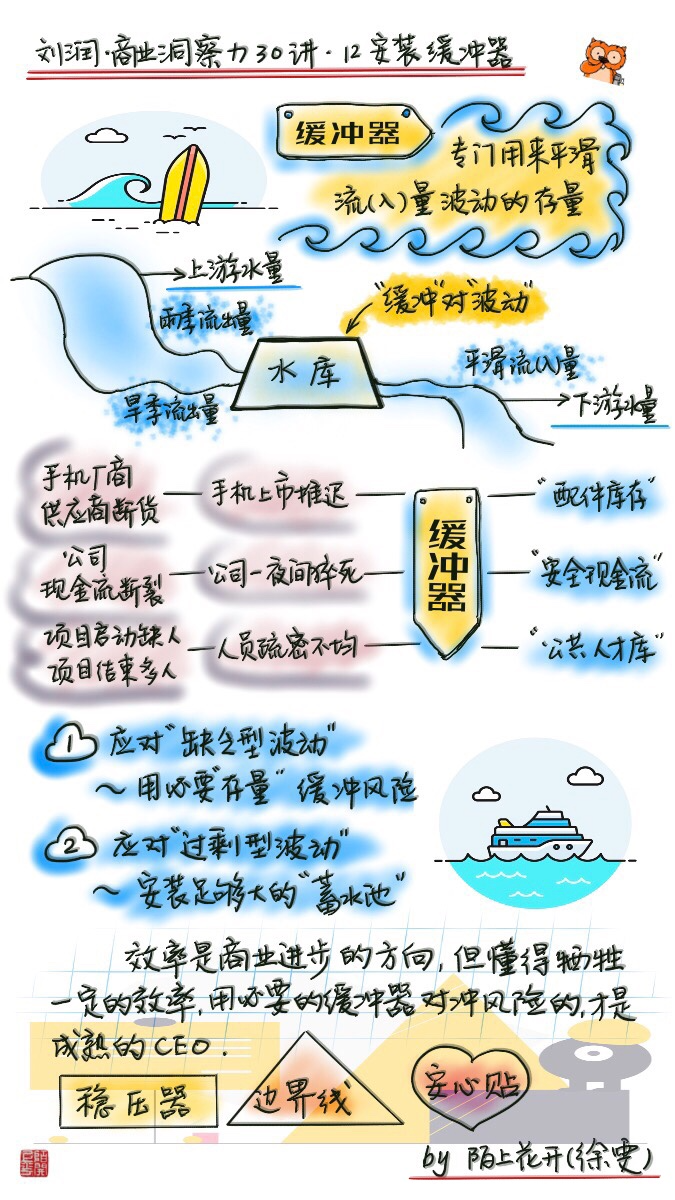 刘润·商业洞察力30讲·12安装缓冲器
缓冲器
专门用来平滑
流(入)量波动的存量
上游水量
雨季流出量
"缓冲"对"波动"
水库
平滑流(入)量
旱季流出量
下游水量
手机厂商
供应商断货
手机上市推迟
"配件库存"
缓冲器
公司
现金流断裂
公司一夜间猝死
"安全现金流"
项目启动缺人
项目结束多人
人员疏密不均
"公共人才库"
1 应对"缺乏型波动"
～用必要"存量"缓冲风险
2 应对"过剩型波动"
～安装足够大的"蓄水池"
效率是商业进步的方向,但懂得牺牲
一定的效率,用必要的缓冲器对冲风险的,才是
成熟的CEO.
稳压器
边界线
安心贴
by 陌上花开(徐雯)